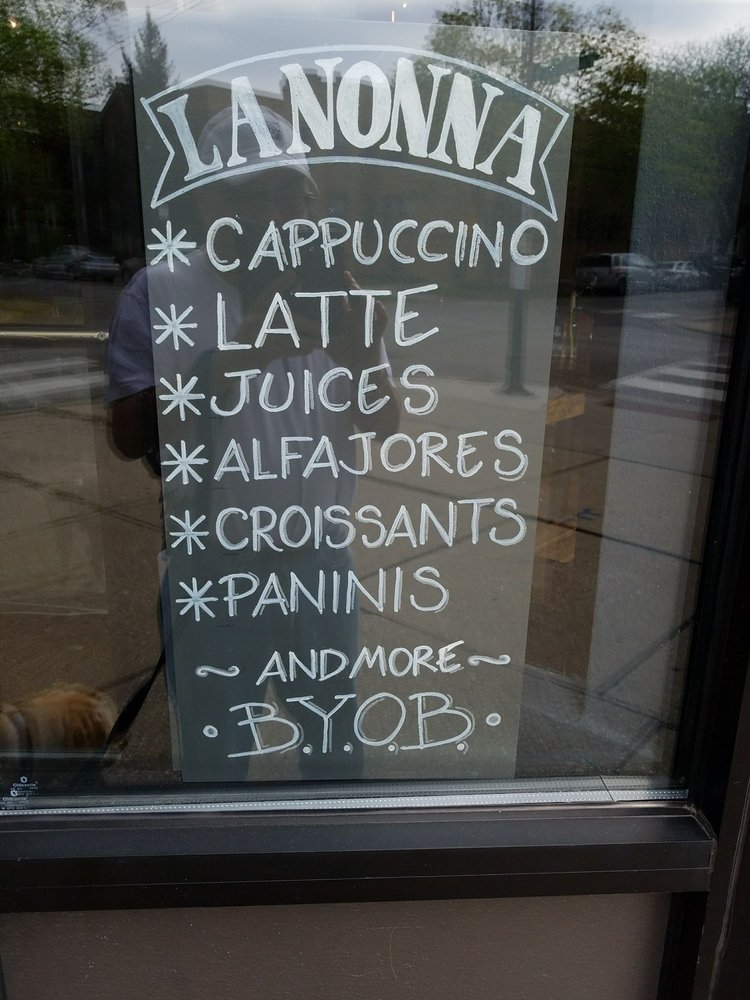 LA NONNA
* CAPPUCCINO
* LATTE
* JUICES
* ALFAJORES
* CROISSANTS
* PANINIS
~ AND MORE ~
· B.Y.O.B. ·